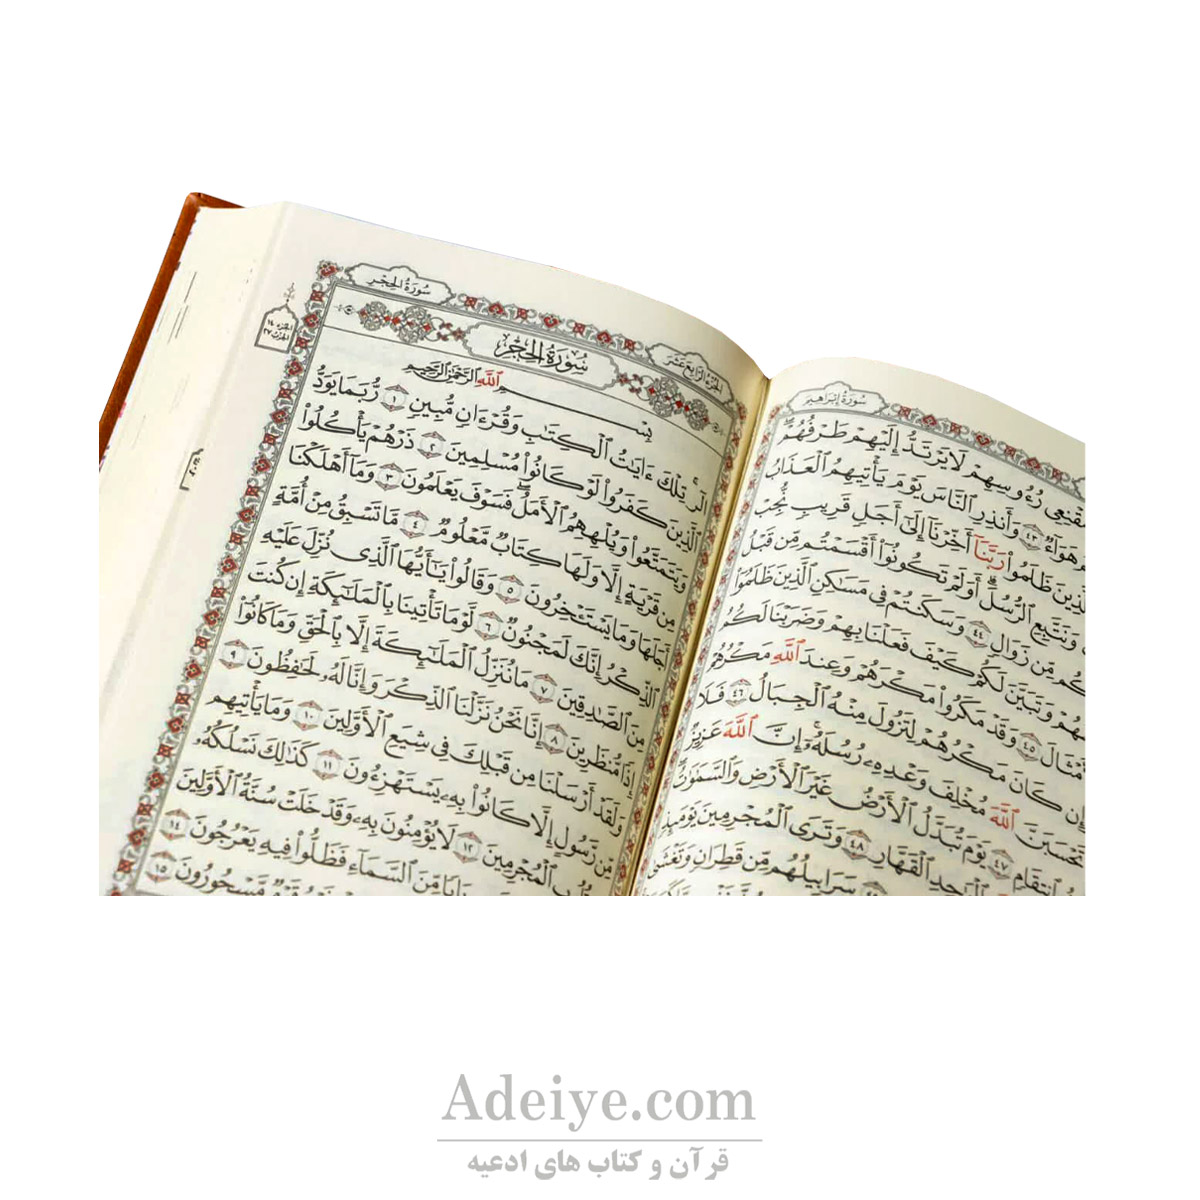 سُورَةُ إِبْرَاهِيمَ
مُقْنِعِى رُءُوسِهِمْ لَا يَرْتَدُّ إِلَيْهِمْ طَرْفُهُمْ
هَوَآءٌ ٤٣ وَأَنذِرِ ٱلنَّاسَ يَوْمَ يَأْتِيهِمُ ٱلْعَذَابُ
ٱلَّذِينَ ظَلَمُوا۟ رَبَّنَآ أَخِّرْنَآ إِلَىٰٓ أَجَلٍ قَرِيبٍ نُّجِبْ
وَنَتَّبِعِ ٱلرُّسُلَ أَوَلَمْ تَكُونُوٓا۟ أَقْسَمْتُم مِّن قَبْلُ
مِّن زَوَالٍ ٤٤ وَسَكَنتُمْ فِى مَسَٰكِنِ ٱلَّذِينَ ظَلَمُوٓا۟
وَتَبَيَّنَ لَكُمْ كَيْفَ فَعَلْنَا بِهِمْ وَضَرَبْنَا لَكُمُ
ٱلْأَمْثَالَ ٤٥ وَقَدْ مَكَرُوا۟ مَكْرَهُمْ وَعِندَ ٱللَّهِ مَكْرُهُمْ
وَإِن كَانَ مَكْرُهُمْ لِتَزُولَ مِنْهُ ٱلْجِبَالُ ٤٦ فَلَا
تَحْسَبَنَّ ٱللَّهَ مُخْلِفَ وَعْدِهِۦ رُسُلَهُۥٓ إِنَّ ٱللَّهَ عَزِيزٌ
ٱنتِقَامٍ ٤٧ يَوْمَ تُبَدَّلُ ٱلْأَرْضُ غَيْرَ ٱلْأَرْضِ وَٱلسَّمَٰوَٰتُ
ٱلْوَٰحِدِ ٱلْقَهَّارِ ٤٨ وَتَرَى ٱلْمُجْرِمِينَ يَوْمَئِذٍ
سَرَابِيلُهُم مِّن قَطِرَانٍ وَتَغْشَىٰ
الجُزءُ الرَّابِعَ عَشَرَ
سُورَةُ الحِجْرِ
الجزء ١٤
الحزب ٢٧
سُورَةُ الحِجْرِ
بِسْمِ ٱللَّهِ ٱلرَّحْمَٰنِ ٱلرَّحِيمِ
الٓر تِلْكَ ءَايَٰتُ ٱلْكِتَٰبِ وَقُرْءَانٍ مُّبِينٍ ١ رُّبَمَا يَوَدُّ
ٱلَّذِينَ كَفَرُوا۟ لَوْ كَانُوا۟ مُسْلِمِينَ ٢ ذَرْهُمْ يَأْكُلُوا۟
وَيَتَمَتَّعُوا۟ وَيُلْهِهِمُ ٱلْأَمَلُ فَسَوْفَ يَعْلَمُونَ ٣ وَمَآ أَهْلَكْنَا
مِن قَرْيَةٍ إِلَّا وَلَهَا كِتَابٌ مَّعْلُومٌ ٤ مَّا تَسْبِقُ مِنْ أُمَّةٍ
أَجَلَهَا وَمَا يَسْتَـْٔخِرُونَ ٥ وَقَالُوا۟ يَٰٓأَيُّهَا ٱلَّذِى نُزِّلَ عَلَيْهِ
ٱلذِّكْرُ إِنَّكَ لَمَجْنُونٌ ٦ لَّوْمَا تَأْتِينَا بِٱلْمَلَٰٓئِكَةِ إِن كُنتَ
مِنَ ٱلصَّٰدِقِينَ ٧ مَا نُنَزِّلُ ٱلْمَلَٰٓئِكَةَ إِلَّا بِٱلْحَقِّ وَمَا كَانُوٓا۟
إِذًا مُّنظَرِينَ ٨ إِنَّا نَحْنُ نَزَّلْنَا ٱلذِّكْرَ وَإِنَّا لَهُۥ لَحَٰفِظُونَ ٩
وَلَقَدْ أَرْسَلْنَا مِن قَبْلِكَ فِى شِيَعِ ٱلْأَوَّلِينَ ١٠ وَمَا يَأْتِيهِم
مِّن رَّسُولٍ إِلَّا كَانُوا۟ بِهِۦ يَسْتَهْزِءُونَ ١١ كَذَٰلِكَ نَسْلُكُهُۥ
ٱلْمُجْرِمِينَ ١٢ لَا يُؤْمِنُونَ بِهِۦ وَقَدْ خَلَتْ سُنَّةُ ٱلْأَوَّلِينَ
مِّنَ ٱلسَّمَآءِ فَظَلُّوا۟ فِيهِ يَعْرُجُونَ ١٤
مَّسْحُورُونَ ١٥
Adeiye.com
قرآن و کتاب های ادعیه